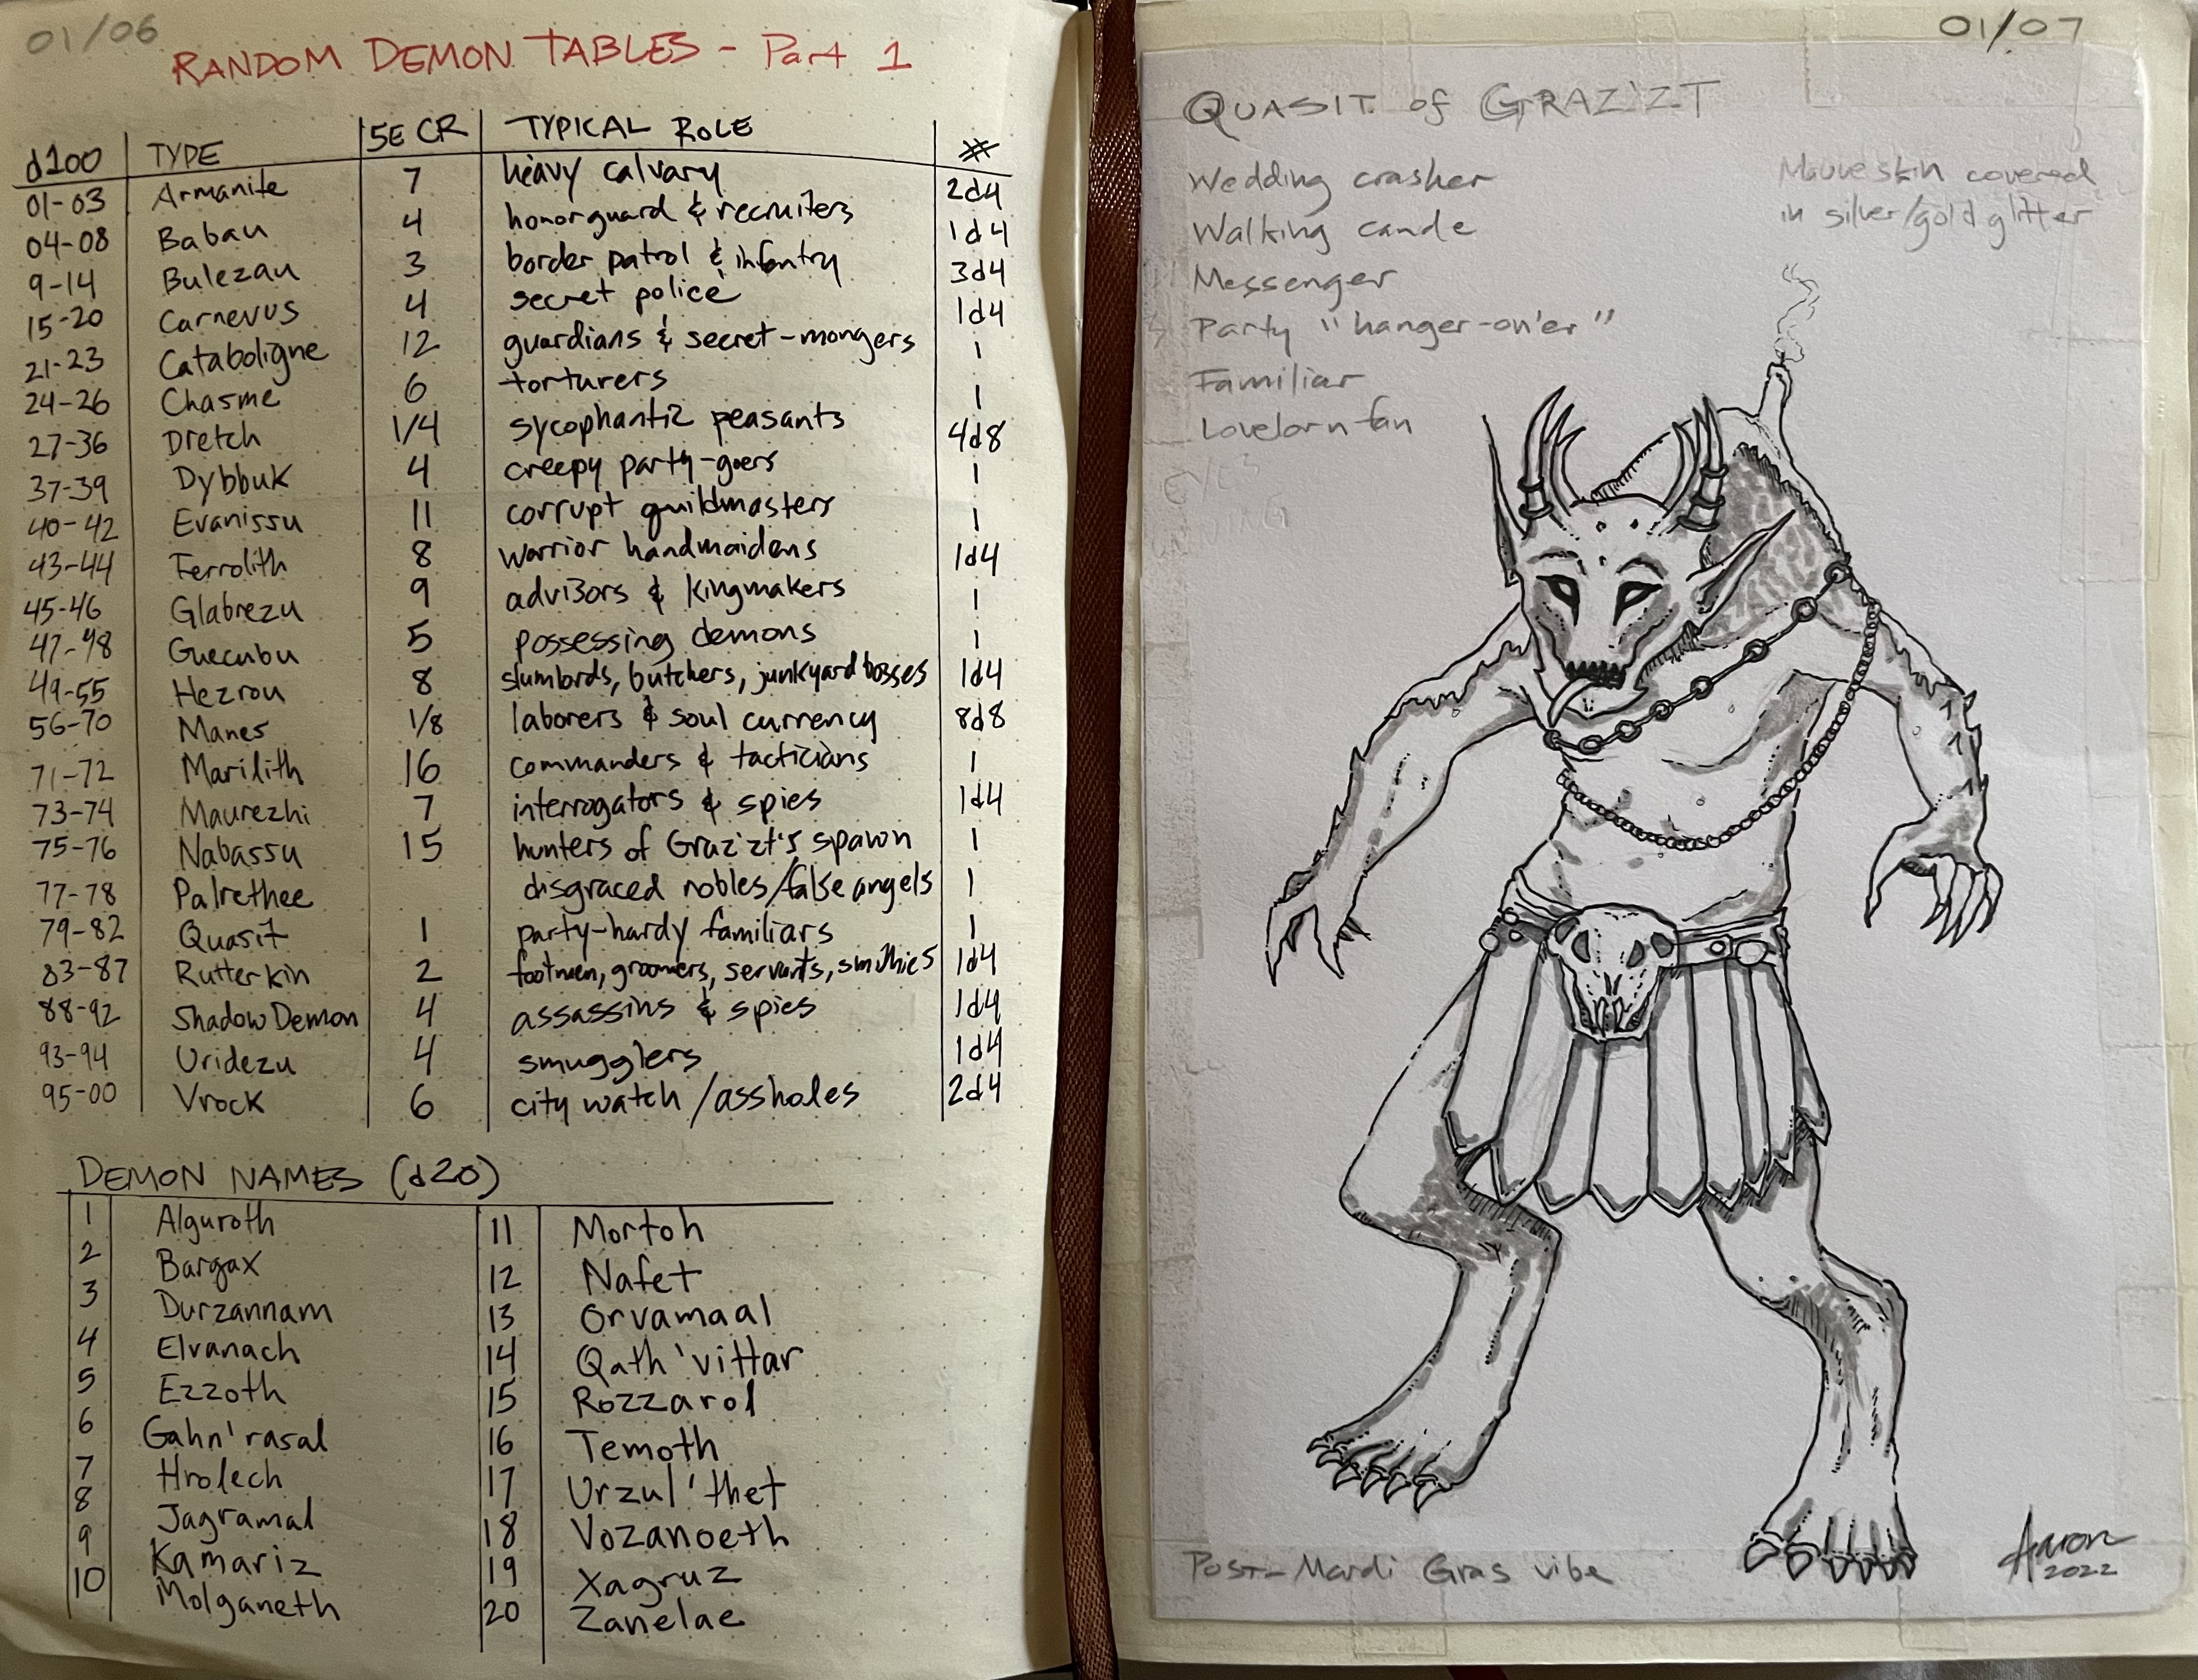 01/06
RANDOM DEMON TABLES - Part 1
d100 TYPE 5E CR TYPICAL ROLE #
01-03 Armanite 7 heavy calvary 2d4
04-08 Babau 4 honorguard & recruiters 1d4
9-14 Bulezau 3 border patrol & infantry 3d4
15-20 Carnevus 4 secret police 1d4
21-23 Cataboligne 12 guardians & secret-mongers 1
24-26 Chasme 6 torturers 1
27-36 Dretch 1/4 sycophantic peasants 4d8
37-39 Dybbuk 4 creepy party-goers 1
40-42 Evanissu 11 corrupt guildmasters 1
43-44 Ferrolith 8 warrior handmaidens 1d4
45-46 Glabrezu 9 advisors & kingmakers 1
47-48 Guecubu 5 possessing demons 1
49-55 Hezrou 8 slumlords, butchers, junkyard bosses 1d4
56-70 Manes 1/8 laborers & soul currency 8d8
71-72 Marilith 16 commanders & tacticians 1
73-74 Maurezhi 7 interrogators & spies 1d4
75-76 Nabassu 15 hunters of Graz'zt's spawn 1
77-78 Palrethee disgraced nobles/false angels 1
79-82 Quasit 1 party-hardy familiars 1
83-87 Rutterkin 2 footmen, groomers, servants, smithies 1d4
88-92 Shadow Demon 4 assassins & spies 1d4
93-94 Uridezu 4 smugglers 1d4
95-00 Vrock 6 city watch/assholes 2d4
DEMON NAMES (d20)
1 Alguroth 11 Mortoh
2 Bargax 12 Nafet
3 Durzannam 13 Orvamaal
4 Elvanach 14 Qath'vittar
5 Ezzoth 15 Rozzarol
6 Gahn'rasal 16 Temoth
7 Hrolech 17 Urzul'thet
8 Jagramal 18 Vozanoeth
9 Kamariz 19 Xagruz
10 Molganeth 20 Zanelae
01/07
QUASIT of GRAZ'ZT
Wedding crasher
Walking cande
Messenger
Party "hanger-on'er"
Familiar
Lovelorn fan
Mauve skin covered
in silver/gold glitter
Post-Mardi Gras vibe
Aaron
2022